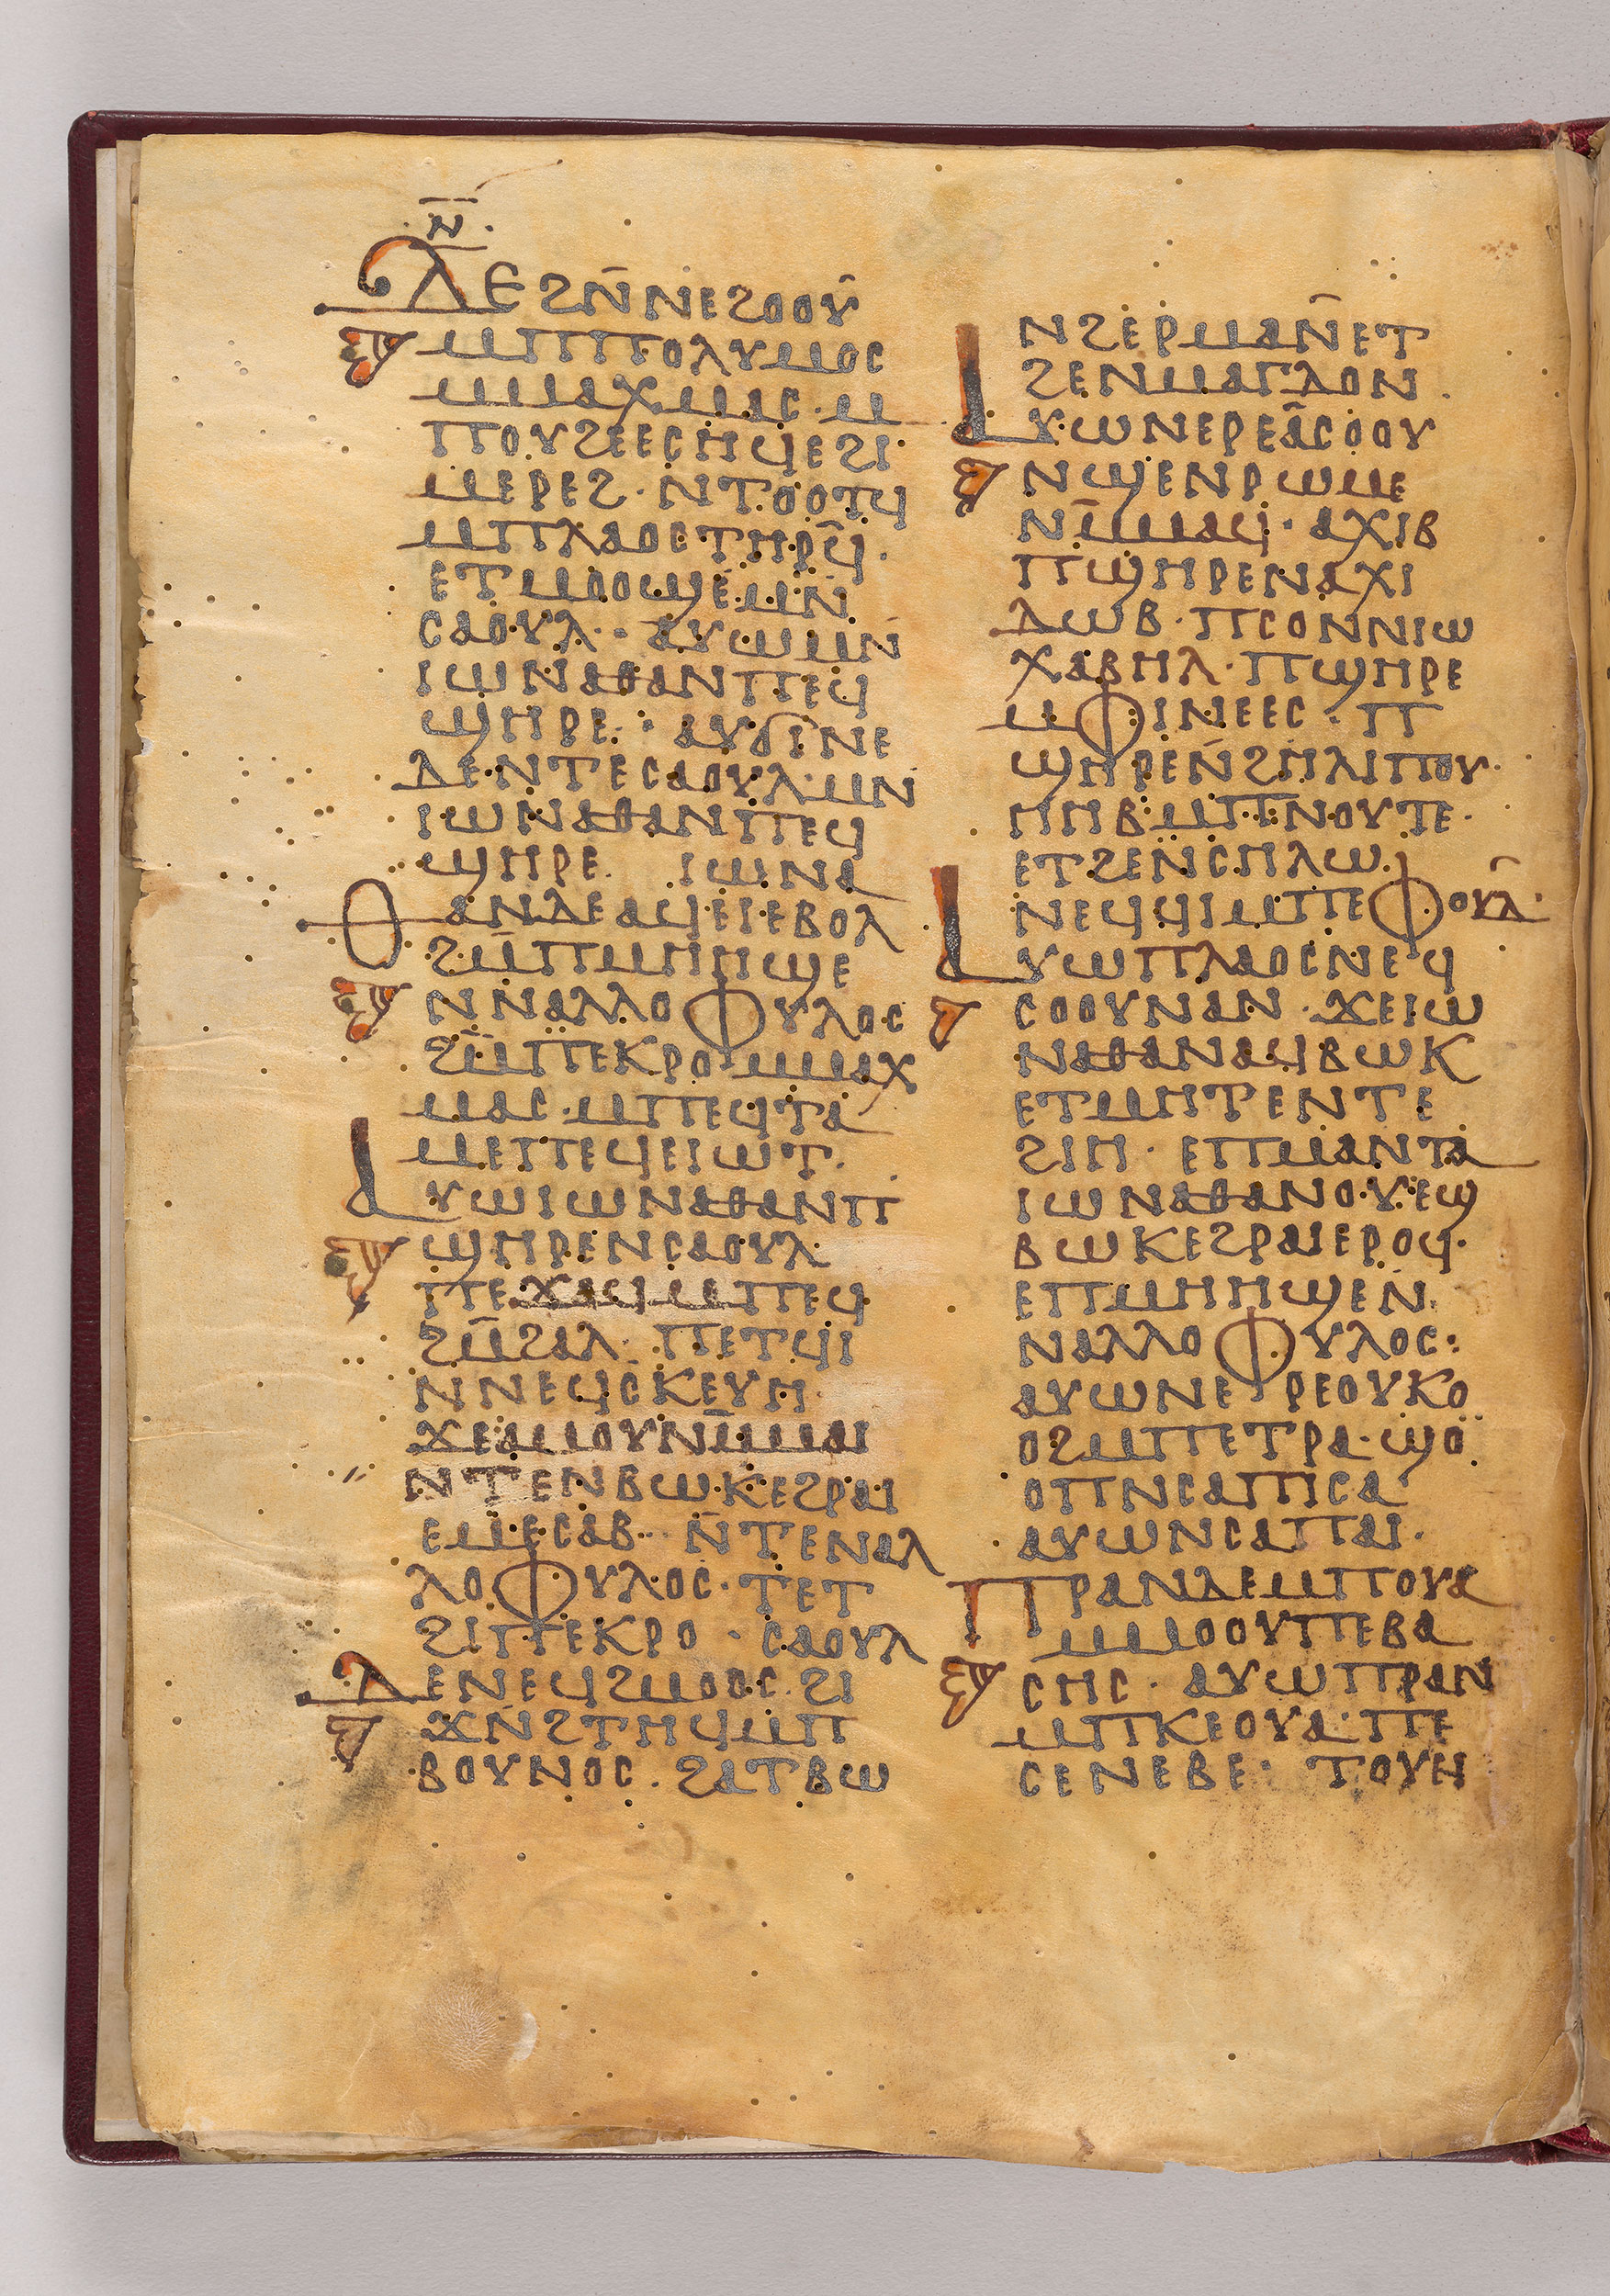 ⲛ̅
ⲇⲉ ϩⲛ̄ⲛⲉϩⲟⲟⲩ̄
ⲙⲡⲡⲟⲗⲩⲙⲟⲥ
ⲙⲙⲁⲭⲙⲁⲥ· ⲙ
ⲡⲟⲩϩⲉⲉⲥⲏϥⲉϩⲓ
ⲙⲉⲣⲉϩ· ⲛⲧⲟⲟⲧϥ
ⲙⲡⲗⲁⲟⲥⲧⲏⲣϥ̄·
ⲉⲧⲙⲟⲟϣⲉⲙⲛ̄
ⲥⲁⲟⲩⲗ· ⲁⲩⲱⲙⲛ̄
ⲓⲱⲛⲁⲑⲁⲛⲡⲉϥ
ϣⲏⲣⲉ· ⲁⲩϭⲓⲛⲉ
ⲇⲉⲛⲧⲉⲥⲁⲟⲩⲗ·ⲙⲛ̄
ⲓⲱⲛⲁⲑⲁⲛⲡⲉϥ
ϣⲏⲣⲉ· ⲓⲱⲛⲁ
ⲑⲁⲛⲇⲉⲁϥⲉⲓⲉⲃⲟⲗ
ϩⲙ̄ⲡⲙⲏⲏϣⲉ
ⲛⲛⲁⲗⲗⲟⲫⲩⲗⲟⲥ
ϩⲙ̄ⲡⲉⲕⲣⲟⲙⲙⲁⲭ
ⲙⲁⲥ·ⲙⲡⲉϥⲧⲁ
ⲙⲉⲡⲉϥⲉⲓⲱⲧ·
ⲁⲩⲱⲓⲱⲛⲁⲑⲁⲛⲡ
ϣⲏⲣⲉⲛⲥⲁⲟⲩⲗ
ⲡⲉϫⲁϥⲙⲡⲉϥ
ϩⲙ̄ϩⲁⲗ· ⲡⲉⲧϥⲓ
ⲛⲛⲉϥⲥⲕⲉⲩⲏ
ϫⲉⲁⲙⲟⲩⲛⲙ̄ⲙⲁⲓ
ⲛⲧⲉⲛⲃⲱⲕⲉϩⲣⲁⲓ
ⲉⲙⲉⲥⲁⲃ· ⲛ̄ⲧⲉⲛⲁⲗ
ⲗⲟⲫⲩⲗⲟⲥ·ⲧⲉⲧ
ϩⲓⲡⲉⲕⲣⲟ· ⲥⲁⲟⲩⲗ
ⲇⲉⲛⲉϥϩⲙⲟⲟⲥ ϩⲓ
ϫⲛ̄ϩⲧⲏϥⲙⲡ
ⲃⲟⲩⲛⲟⲥ· ϩⲁⲧⲃⲱ
ⲛϩⲉⲣⲙⲁⲛ̄ⲉⲧ
ϩⲉⲛⲙⲁⲅⲇⲟⲛ·
ⲁⲩⲱⲛⲉⲣⲉⲁ̄ⲥⲟⲟⲩ
ⲛϣⲉⲛⲣⲱⲙⲉ
ⲛⲙ̄ⲙⲁϥ· ⲁⲭⲓⲃ
ⲡϣⲏⲣⲉⲛⲁⲭⲓ
ⲇⲱⲃ· ⲡⲥⲟⲛⲛⲓⲱ
ⲭⲁⲃⲏⲗ· ⲡϣⲏⲣⲉ
ⲙⲫⲓⲛⲉⲉⲥ· ⲡ
ϣⲏⲣⲉⲛ̄ϩⲏⲗⲓⲡⲟⲩ·
ⲏⲏⲃ·ⲙⲡⲛⲟⲩⲧⲉ·
ⲉⲧϩⲉⲛⲥⲏⲗⲱ·
ⲛⲉϥϥⲓⲙⲡⲉⲫⲟⲩⲇ̄·
ⲁⲩⲱⲡⲗⲁⲟⲥⲛⲉϥ
ⲥⲟⲟⲩⲛⲁⲛ· ϫⲉⲓⲱ
ⲛⲁⲑⲁⲛⲁϥⲃⲱⲕ
ⲉⲧⲙⲏⲧⲉⲛⲧⲉ
ϩⲓⲏ· ⲉⲡⲙⲁⲛⲧⲁ
ⲓⲱⲛⲁⲑⲁⲛⲟⲩⲉϣ
ⲃⲱⲕⲉϩⲣⲁⲓⲉⲣⲟϥ·
ⲉⲡⲙⲏⲏϣⲉⲛ̄
ⲛⲁⲗⲗⲟⲫⲩⲗⲟⲥ:
ⲁⲩⲱⲛⲉⲣⲉⲟⲩⲕⲟ
ⲟϩⲙⲡⲉⲧⲣⲁ·ϣⲟ
ⲟⲡⲛⲥⲁⲡⲓⲥⲁ
ⲁⲩⲱⲛⲥⲁⲡⲁⲓ·
ⲡⲣⲁⲛⲇⲉⲙⲡⲟⲩⲁ
ⲙⲙⲟⲟⲩⲡⲉⲃⲁ
ⲥⲏⲥ· ⲁⲩⲱⲡⲣⲁⲛ
ⲙⲡⲕⲉⲟⲩⲁ·ⲡⲉ
ⲥⲉⲛⲉⲃⲉ· ⲧⲟⲩⲉⲓ